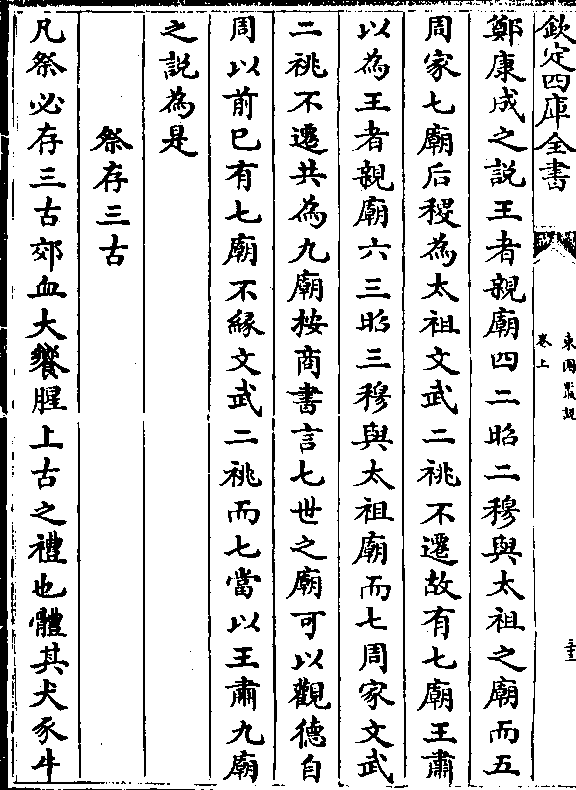 欽定四庫全書
東園叢說
卷上
鄭康成之説王者親廟四二昭二穆與太祖之廟而五
周家七廟后稷為太祖文武二祧不遷故有七廟王肅
以為王者親廟六三昭三穆與太祖廟而七周家文武
二祧不遷共為九廟按商書言七世之廟可以觀德自
周以前已有七廟不緣文武二祧而七當以王肅九廟
之説為是
祭存三古
凡祭必存三古郊血大饗腥上古之禮也體其犬豕牛